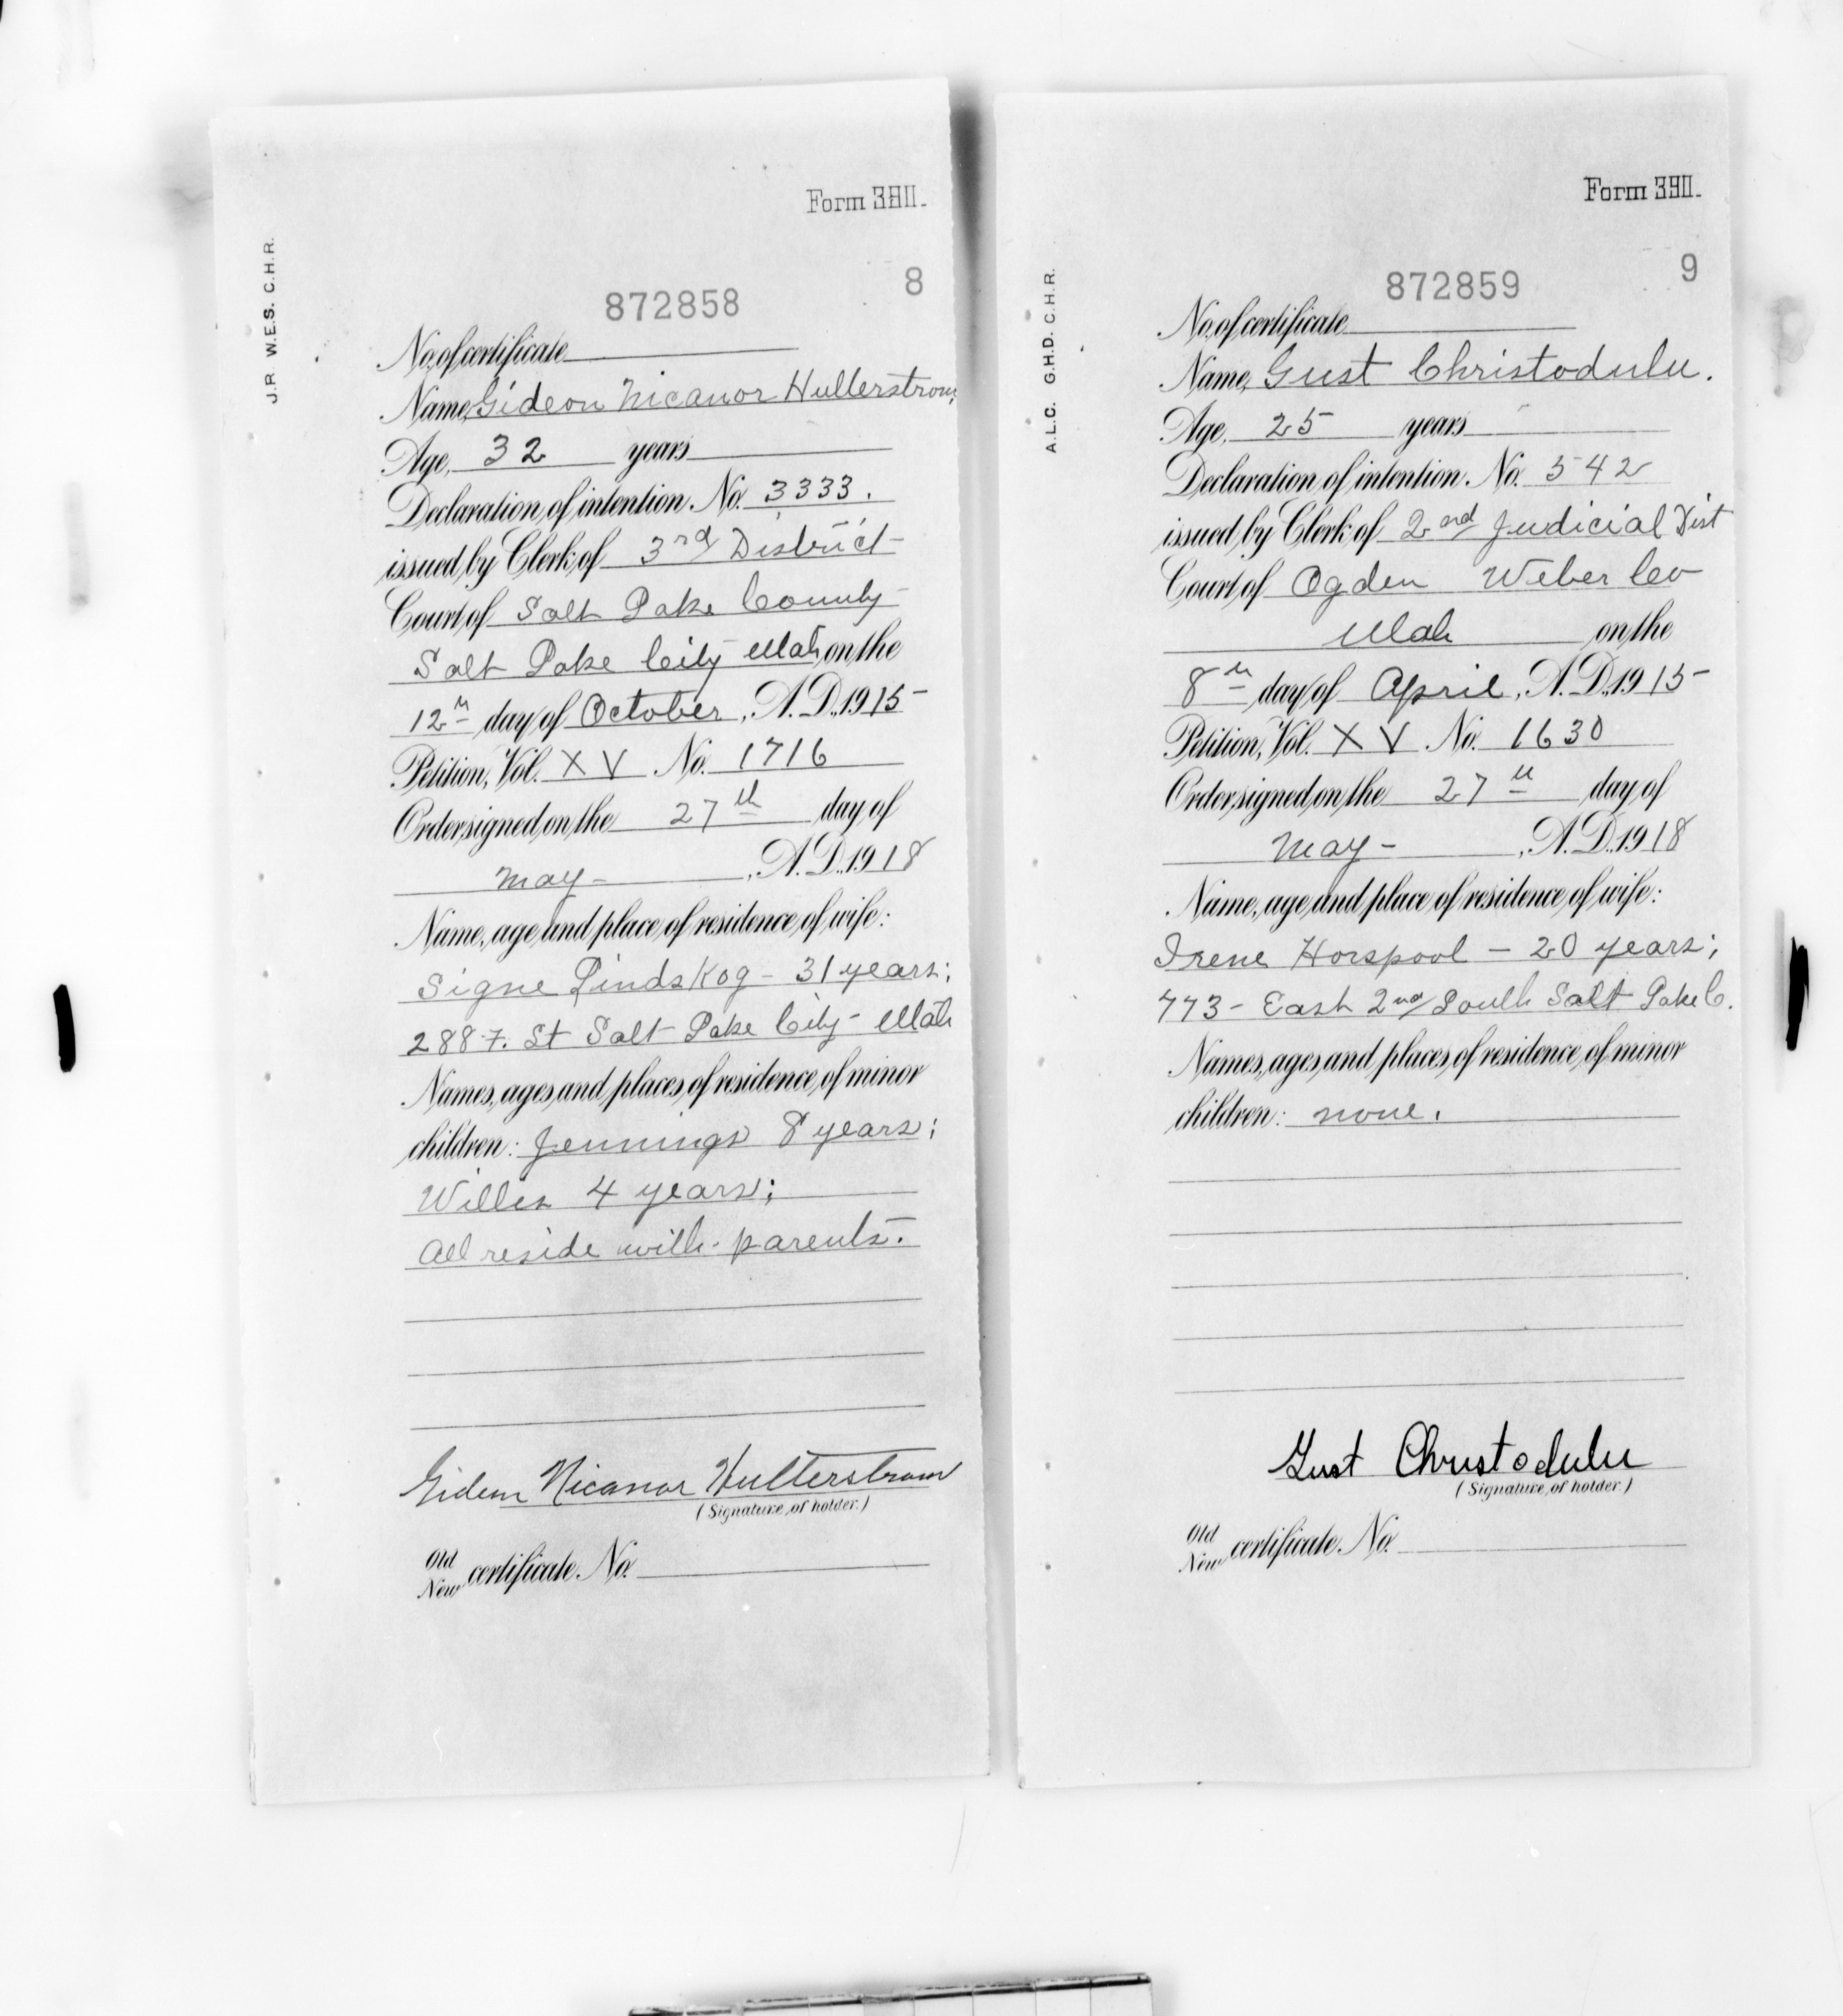 Form 3811.
J.P. W.E.S. C.H.R.
8
872858
No. of certificate
Name, Gideon Nicanor Hullerstrom,
Age, 32 years
Declaration of intention. No. 3333.
issued by Clerk of 3rd District
Court of Salt Lake County
Salt Lake City Utah, on the
12th day of October, A.D. 1915
Petition, Vol. XV No. 1716
Order signed on the 27th day of
May - , A.D. 1918
Name, age and place of residence of wife:
Signe Lindskog - 31 years;
288 - 7. St Salt Lake City - Utah
Names, ages and places of residence of minor
children: Jennings 8 years;
Willis 4 years;
All reside with parents.
Gideon Nicanor Hulterstrom
(Signature of holder.)
Old
New certificate. No.
Form 3811.
A.L.C. G.H.D. C.H.R.
9
872859
No. of certificate
Name, Gust Christodulu.
Age, 25 years
Declaration of intention. No. 542
issued by Clerk of 2nd Judicial Dist
Court of Ogden Weber Co
Utah on the
8th day of April, A.D. 1915
Petition, Vol. XV No. 1630
Order signed on the 27th day of
May - , A.D. 1918
Name, age and place of residence of wife:
Irene Horspool - 20 years;
773 - East 2nd South Salt Lake C.
Names, ages and places of residence of minor
children: none.
Gust Christodulu
(Signature of holder.)
Old
New certificate. No.